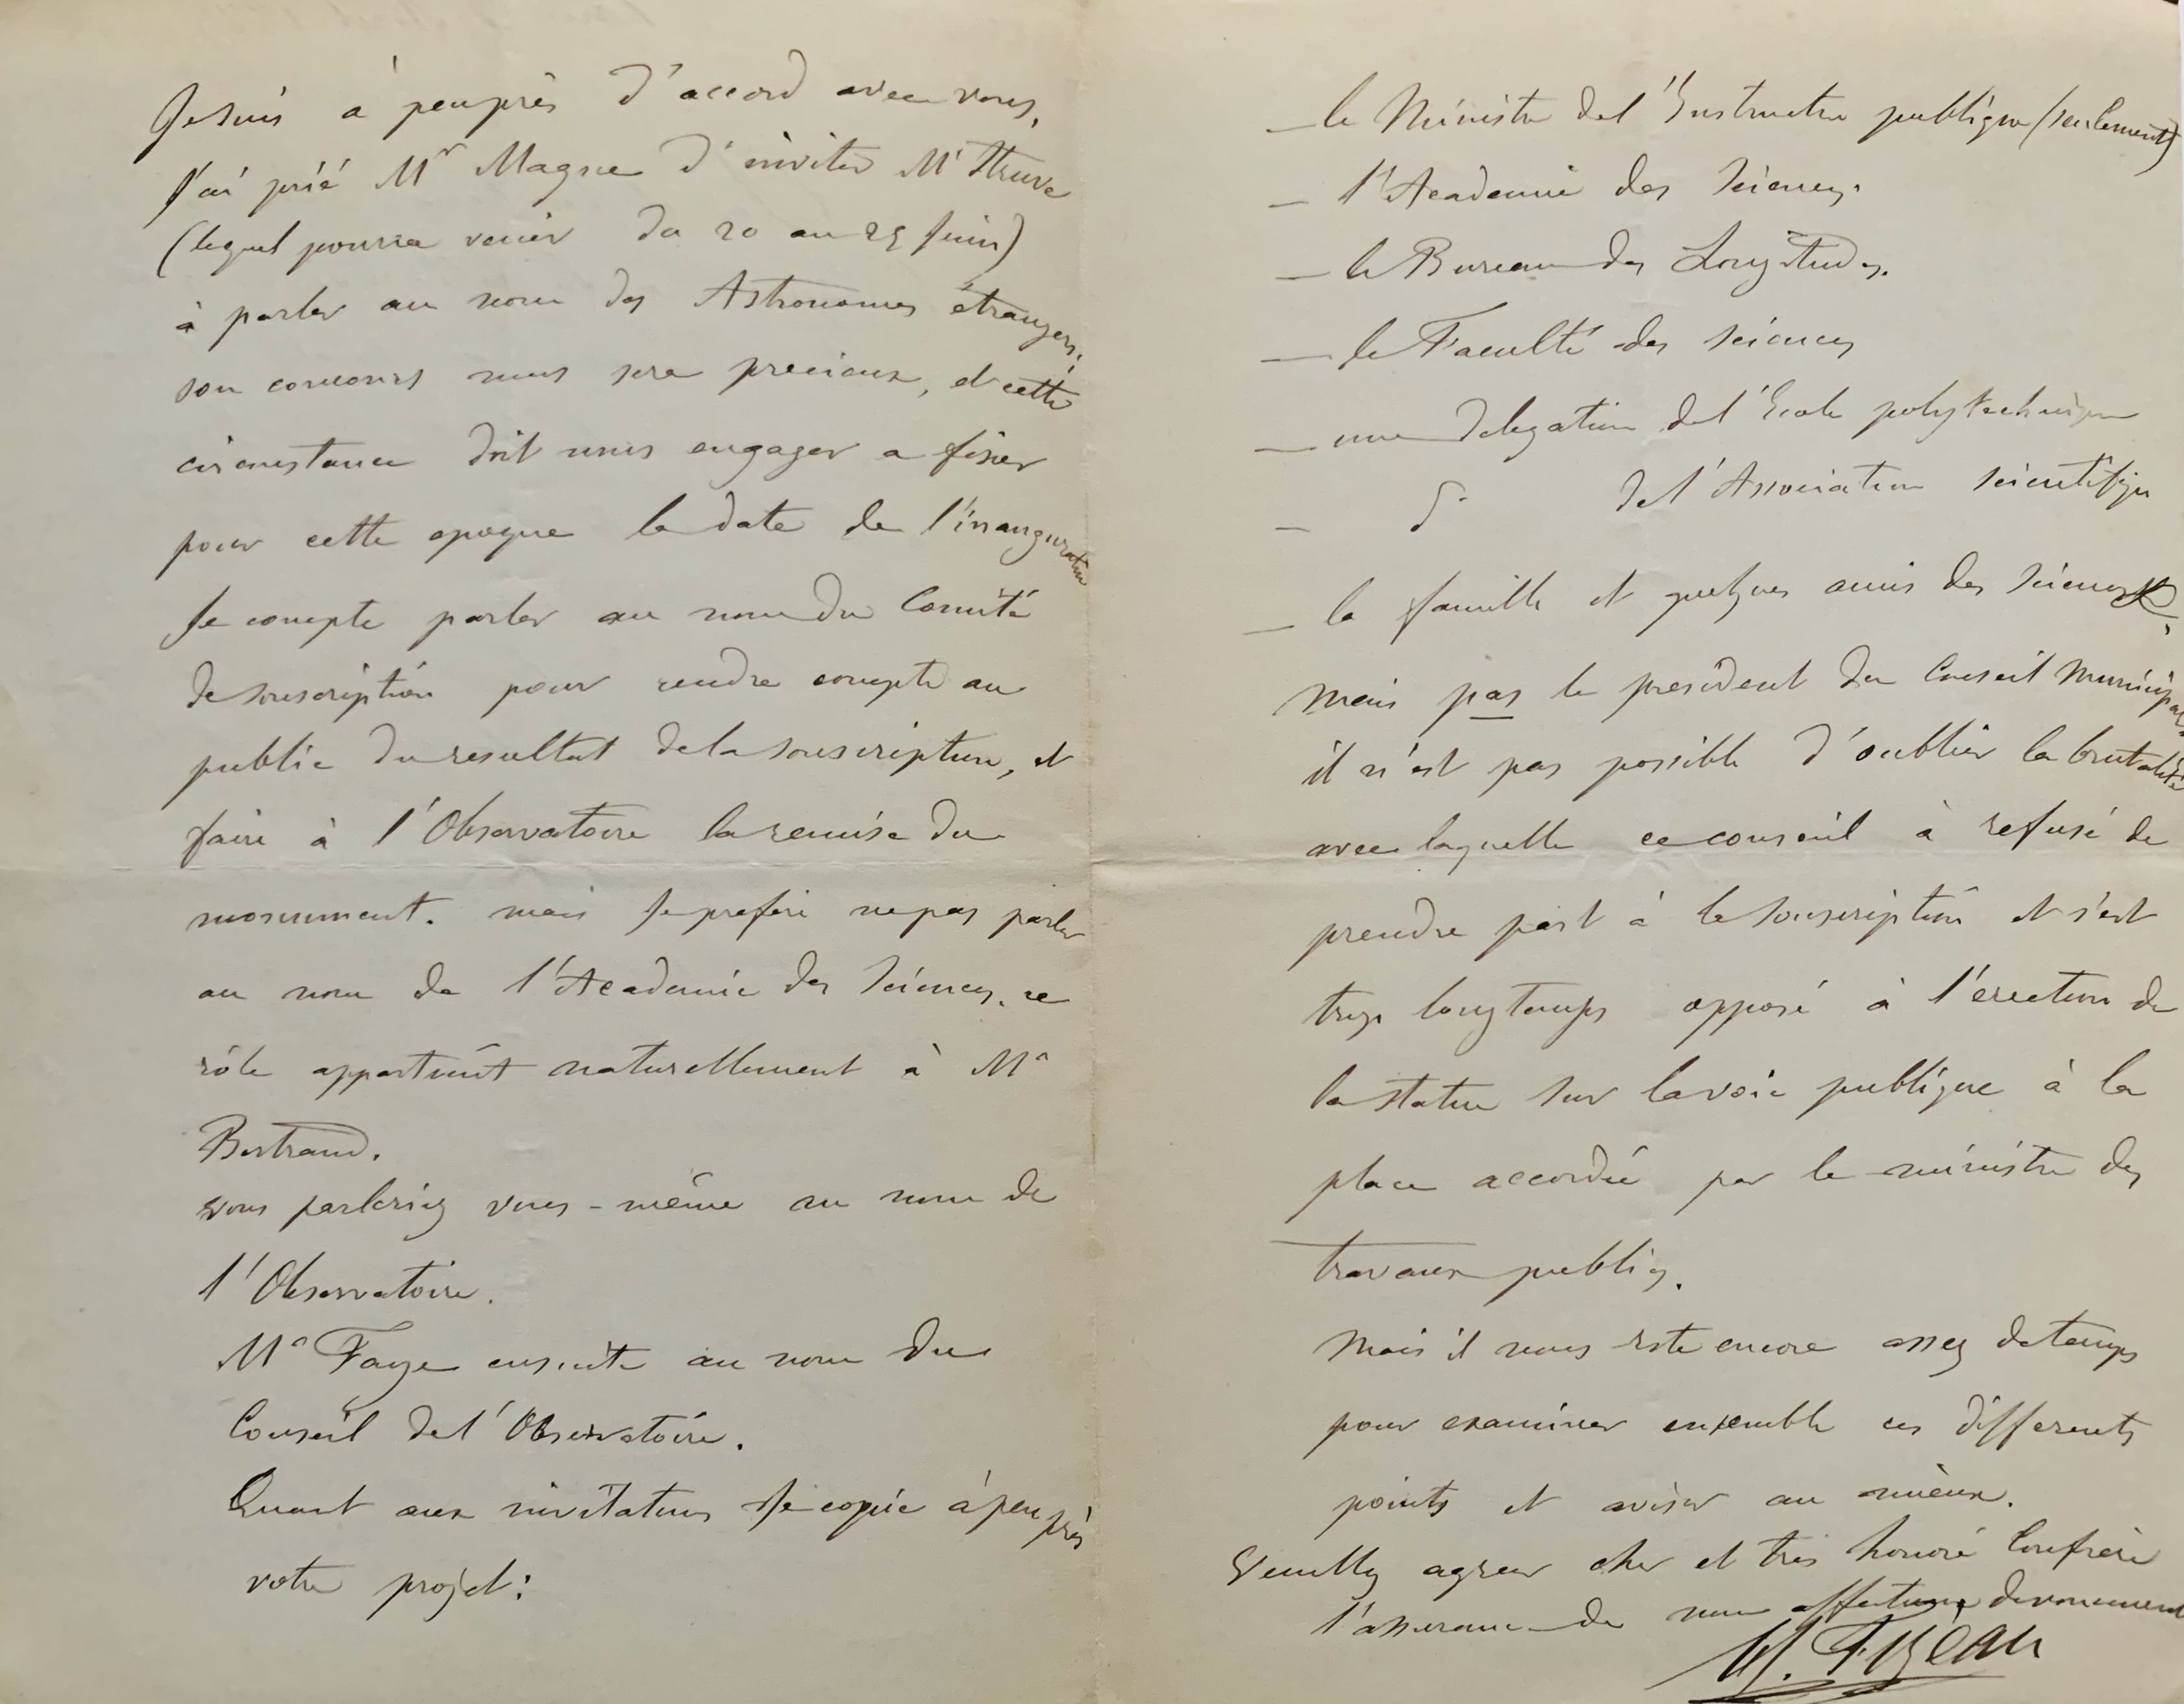 Je suis à peuprès d'accord avec vous,
J'ai prié Mr Magne d'inviter Mr Struve
(lequel pourra venir du 20 au 25 Juin)
à parler au nom des Astronomes étrangers,
son concours nous sera precieux, et cette
circonstance doit nous engager a fixer
pour cette epoque la date de l'inauguration
Je compte parler au nom du Comité
de souscription pour rendre compte au
public du resultat de la souscription, et
faire à l'Observatoire la remise du
monument. mais Je prefère ne pas parler
au nom de l'Academie des Sciences, ce
rôle appartient naturellement à Mr
Bertrand.
vous parleriez vous-même au nom de
l'Observatoire.
Mr Faye ensuite au nom du
Conseil de l'Observatoire.
Quant aux invitations Je copie à peu près
votre projet:
— le Ministre de l'Instruction publique (seulement)
— l'Academie des Sciences.
— le Bureau des Longitudes.
— la Faculté des Sciences
— une delegation de l'École polytechnique
— do de l'Association Scientifique
— la famille et quelques amis des Sciences,
mais pas le president du Conseil Municipal
il n'est pas possible d'oublier la brutalité
avec laquelle ce conseil à refusé de
prendre part à la souscription et s'est
trop longtemps opposé à l'érection de
la statue sur la voie publique à la
place accordée par le ministre des
travaux publics.
Mais il nous reste encore assez de temps
pour examiner ensemble ces différents
points et aviser au mieux.
Veuillez agreer cher et très honoré Confrère
l'assurance de mon affectueux devouement
H. Fizeau